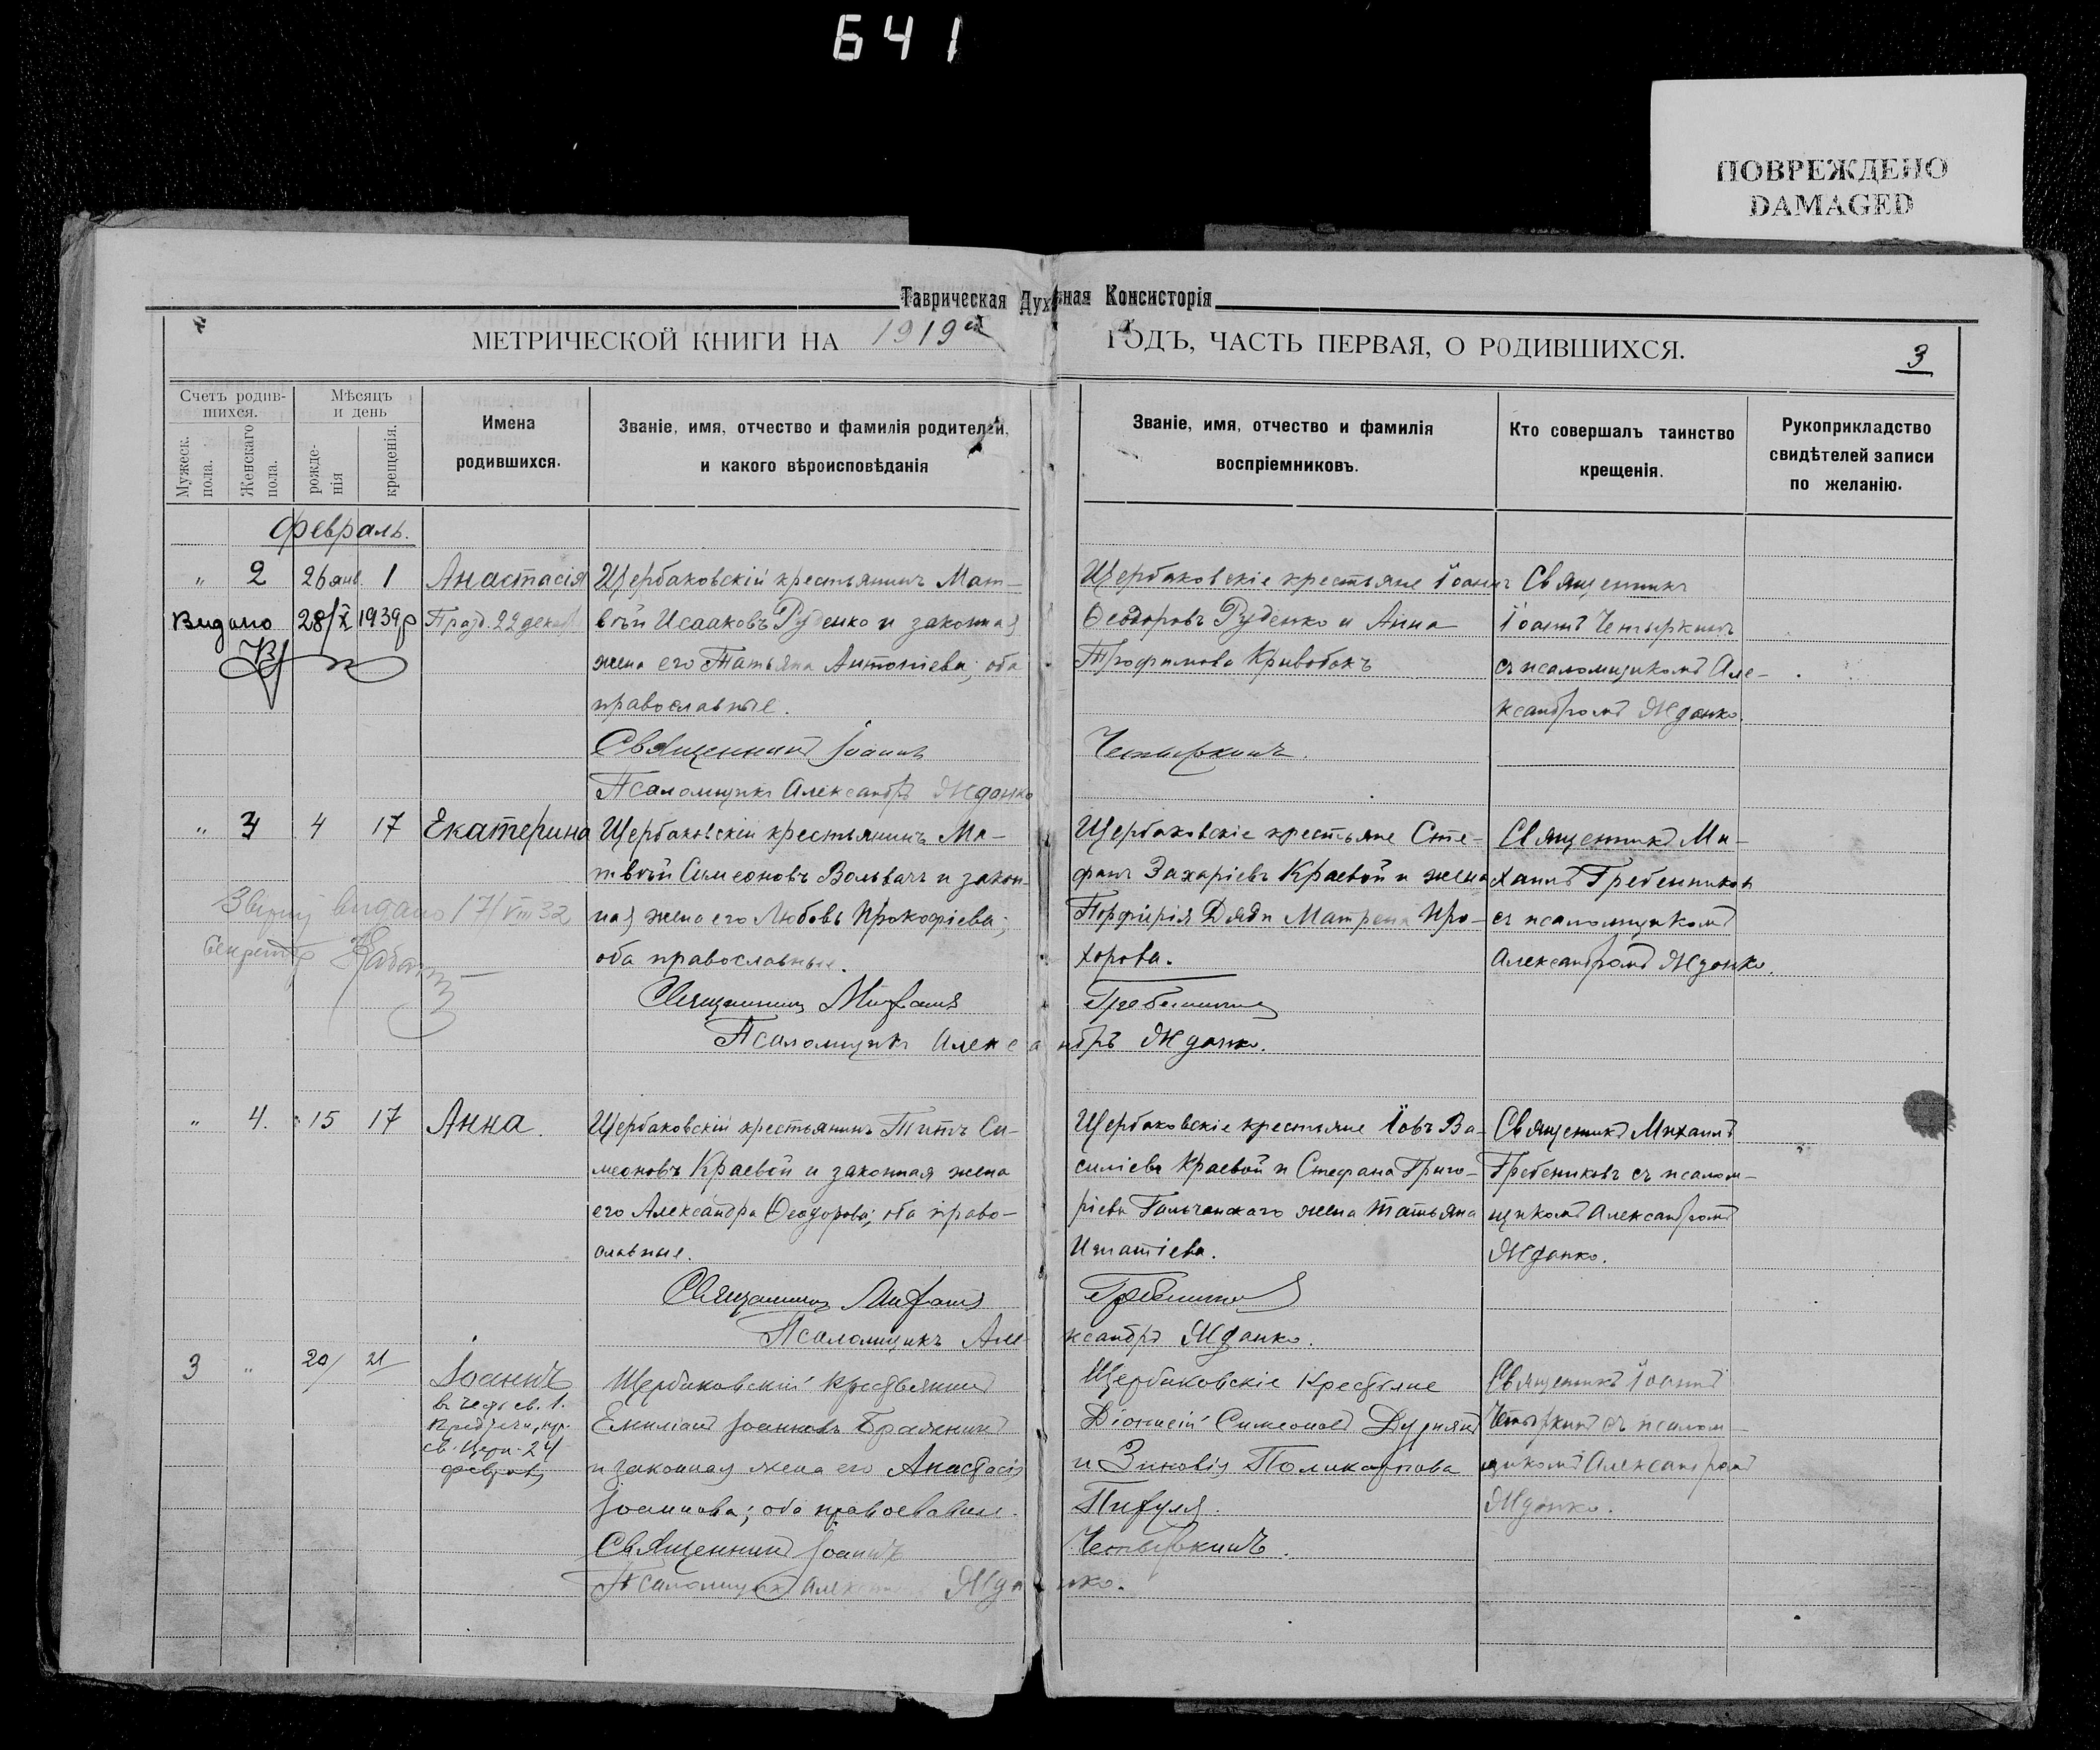 641
ПОВРЕЖДЕНО
DAMAGED
Таврическая Духовная Консисторія
МЕТРИЧЕСКОЙ КНИГИ НА 1919й ГОДЪ, ЧАСТЬ ПЕРВАЯ, О РОДИВШИХСЯ.
3
Счетъ родив-
шихся.
Мужеск.
пола.
Женскаго
пола.
Мѣсяцъ
и день
рожде-
нія
крещенія.
Имена
родившихся.
Званіе, имя, отчество и фамилія родителей,
и какого вѣроисповѣданія
Званіе, имя, отчество и фамилія
воспріемниковъ.
Кто совершалъ таинство
крещенія.
Рукоприкладство
свидѣтелей записи
по желанію.
Февраль.
" 2 26 янв. 1
Видано 28/X 1939р
Анастасія
Празд. 22 декаб
Щербаковскій крестьянинъ Мат-
вѣй Исааковъ Руденко и законная
жена его Татьяна Антоніева; оба
православные.
Священникъ Іоаннъ Четыркинъ.
Псаломщикъ Александръ Жданко
Щербаковскіе крестьяне Іоаннъ
Ѳеодоровъ Руденко и Анна
Трофимова Кривобокъ
Священникъ
Іоаннъ Четыркинъ
съ псаломщикомъ Але-
ксандромъ Жданко.
" 3 4 17
Екатерина
видано 17/VIII 32
Секретар
Щербаковскій крестьянинъ Ма-
твѣй Симеоновъ Вольвачъ и закон-
ная жена его Любовь Прокофіева;
оба православные.
Священникъ Михаилъ Гребенников
Псаломщикъ Александръ Жданко.
Щербаковскіе крестьяне Сте-
фанъ Захаріевъ Краевой и жена
Порфирія Дяди Матрена Про-
хорова.
Священникъ Ми-
хаилъ Гребенниковъ
съ псаломщикомъ
Александромъ Жданко.
" 4. 15 17
Анна.
Щербаковскій крестьянинъ Титъ Си-
меоновъ Краевой и законная жена
его Александра Ѳеодорова; оба право-
славные.
Священникъ Михаилъ Гребенников
Псаломщикъ Александръ Жданко.
Щербаковскіе крестьяне Іовъ Ва-
силіевъ Краевой и Стефана Григо-
ріева Гальчанскаго жена Татьяна
Игнатіева.
Священникъ Михаилъ
Гребениковъ съ псалом-
щикомъ Александромъ
Жданко.
3 " 20/ 21/
Іоаннъ
въ честь св. І.
Предтечи, пр.
св. Церк. 24
февраля
Щербаковскій крестьянинъ
Емиліанъ Іоанновъ Бражникъ
и законная жена его Анастасія
Іоаннова; оба православные.
Священникъ Іоаннъ Четыркинъ.
Псаломщикъ Александръ Жданко.
Щербаковскіе Крестьяне
Діонисій Симеоновъ Дурнянъ
и Зиновія Поликарпова
Пихуля.
Священникъ Іоаннъ
Четыркинъ съ псалом-
щикомъ Александромъ
Жданко.